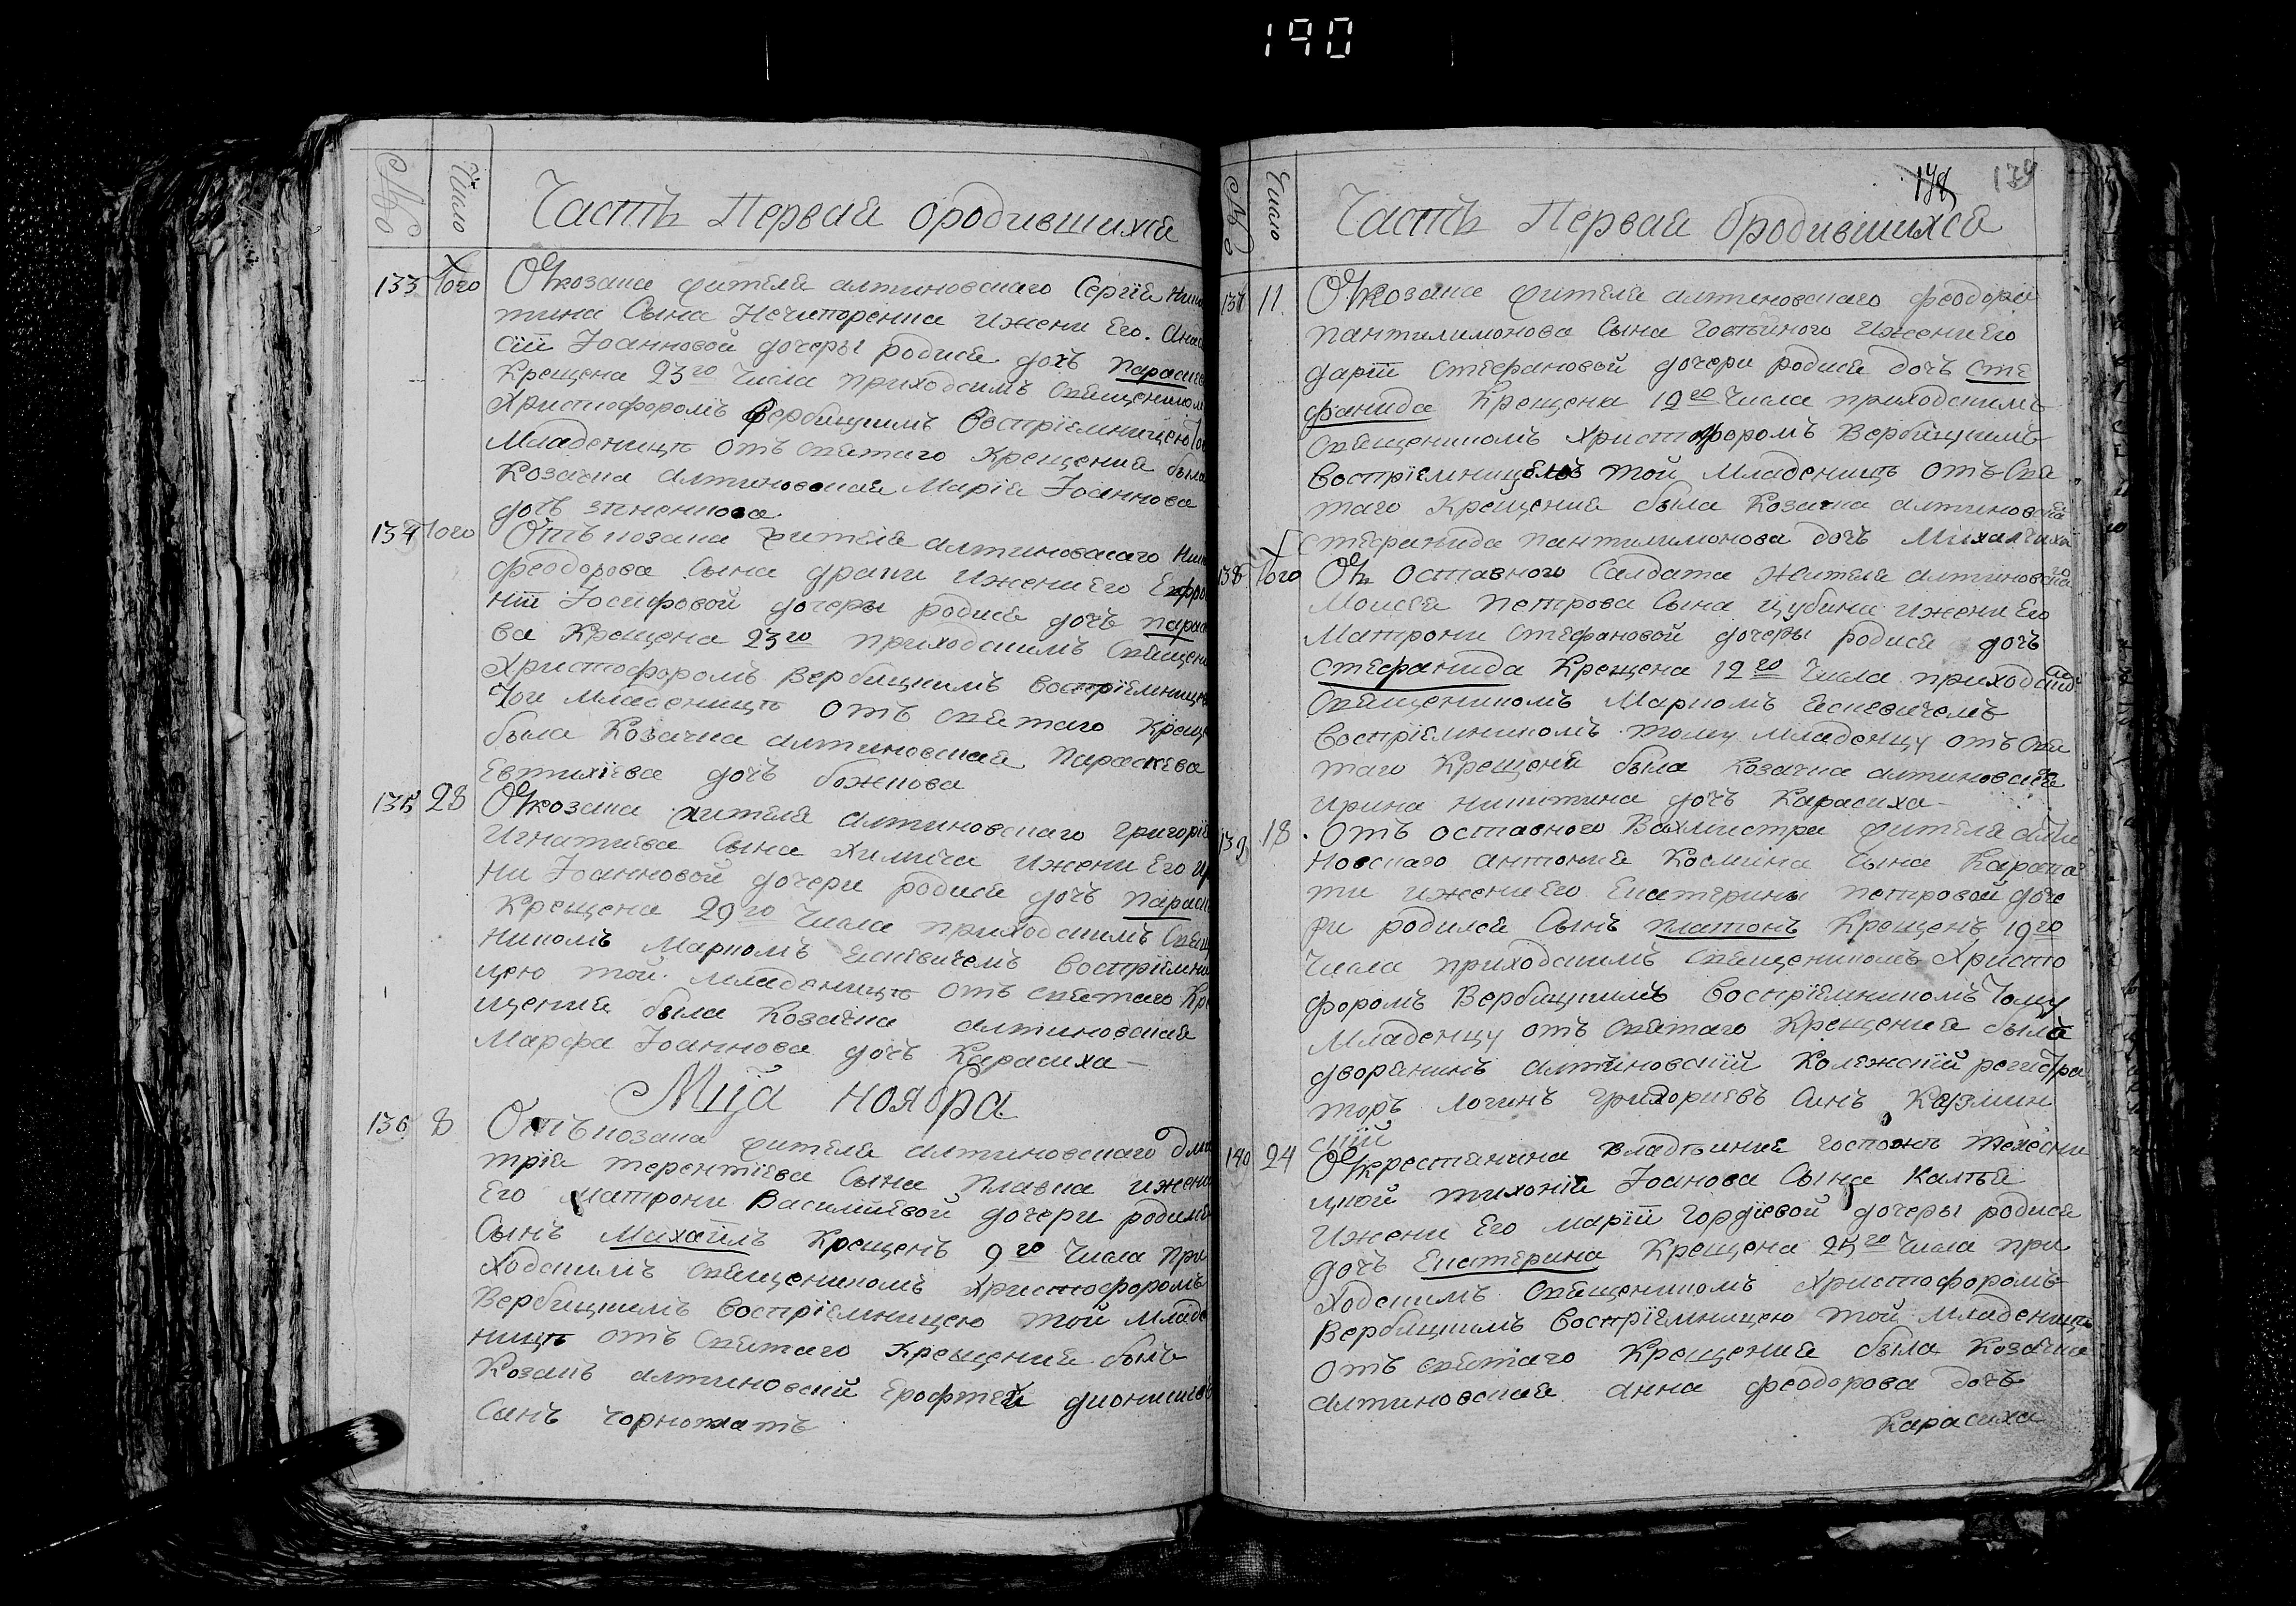 190
№
Число
Часть Первая ородившихся
133 Того От козака жителя алтиновскаго Сергія Ники
тина Сына Нечипоренка ижени Его Анаста
сіи Іоанновой дочеры родися дочь Параске
Крещена 23го Числа приходскимъ Священником
Христофоромъ Вербицкимъ Воспріемницею
Младеницъ отъ святаго Крещения была
Козачка алтиновская Марія Іоаннова
дочь зѣненкова
134 Того Отъ козака жителя алтиновскаго
феодорова Сына драги ижени Его Евфро
ніи Іосифовой дочеры родися дочь параске
ва Крещена 23го приходскимъ Священ
Христофоромъ Вербицкимъ Воспріемницею
Той младеницъ отъ святаго Крещ
была Козачка алтиновская Параскева
Евтихіева дочь божкова
135 28 От козака жителя алтиновскаго Григорія
Игнатиева Сына Химича ижени Его Ири
ни Іоанновой дочери родися дочь Параск
Крещена 29го Числа приходскимъ Свящ
никомъ Маркомъ Ескевичемъ Воспріемни
цею той младеницъ отъ святаго Кре
щения была Козачка алтиновская
Марфа Іоаннова дочь Карасиха
Мца ноября
136 8 Отъ козака жителя алтиновскаго дми
трія терентіева Сына плавка ижени
Его матрони Василиевой дочери родился
Сынъ Михаилъ Крещенъ 9го Числа При
ходскимъ Священникомъ Христофоромъ
Вербицкимъ Воспріемницею той младе
ницъ отъ Святаго Крещения былъ
Козакъ алтиновскій Ерофтей дионисиев
Синъ чорномазъ
№
Число
138 139
Часть Первая ородившихся
137 11. От козака жителя алтиновскаго феодора
пантилимонова Сына Говѣйного ижени Его
даріи стефановой дочери родися дочь Сте
фанида Крещена 12го Числа приходскимъ
Священикомъ Христофоромъ Вербицкимъ
Воспріемницею той Младеницъ отъ Свя
таго Крещения была Козачка алтиновска
стефанида пантилимонова дочь Михалчиха
138 Того От Оставного Салдата Жителя алтиновска
Моисея Петрова Сына Цубина ижени Его
Матрони стефановой дочеры родися дочь
стефанида Крещена 12го Числа приходски
Священикомъ Маркомъ Ескевичемъ
Воспріемникомъ тому младенцу отъ Свя
таго Крещеня была Козачка алтиновская
ирина никитина дочь Карасиха
139 18. Отъ оставного Вахмистра жителя алти
новскаго антония Космина Сына Карпа
ти ижени Его Екатерини петровой доче
ри родился Сынъ платонъ Крещенъ 19го
Числа приходскимъ Священикомъ Христо
форомъ Вербицкимъ Воспріемникомъ Тому
Младенцу отъ Святаго Крещения былъ
дворянинъ алтиновскій Колежскій регистра
торъ логинъ григориевъ Синъ Казмин
скій
140 24 От крестянина владѣния госпожѣ
цкой тихония Іоанова Сына Калтѣя
Ижени Его маріи гордіевой дочеры родися
дочь Екатерина Крещена 25го Числа при
ходскимъ Священикомъ Христофоромъ
Вербицкимъ Воспріемницею той младеницъ
отъ святаго Крещения была Козачка
алтиновская анна феодорова дочь
Карасиха